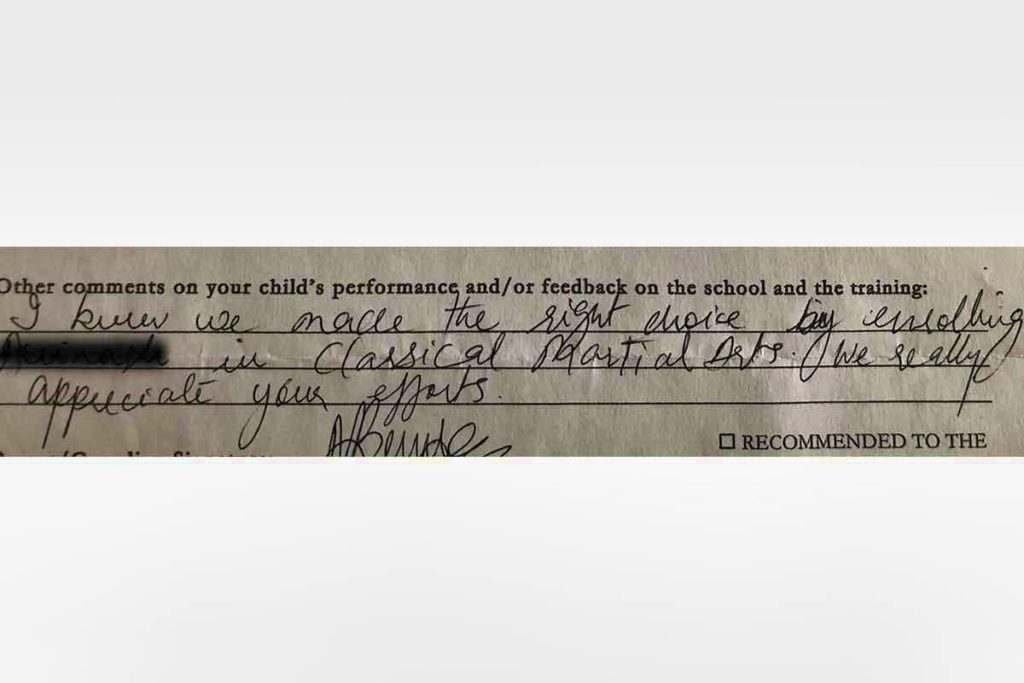 Other comments on your child's performance and/or feedback on the school and the training:
I knew we made the right choice by enrolling
in Classical Martial Arts. We really
appreciate your efforts.
RECOMMENDED TO THE